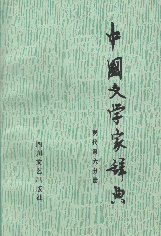 中國文学家辞典
现代第六分册
四川文艺出版社